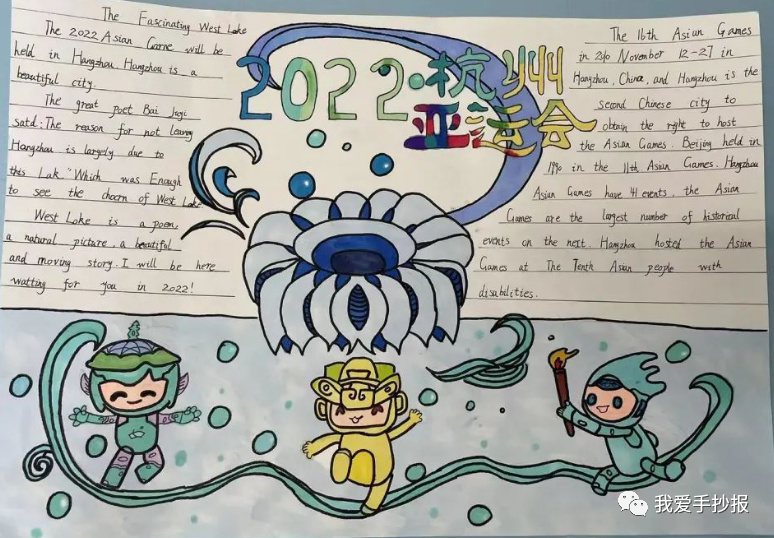 The Fascinating West Lake
The 2022 Asian Game will be
held in Hangzhou. Hangzhou is a
beautiful city.
The great poet Bai Juyi
said: The reason for not leaving
Hangzhou is largely due to
this Lak." Which was Enough
to see the charm of West Lake
West Lake is a poem,
a natural picture, a beautiful
and moving story. I will be here
waiting for you in 2022!
2022·杭州
亚运会
The 16th Asian Games
in November 12-27 in
Hangzhou, China, and Hangzhou is the
second Chinese city to
obtain the right to host
the Asian Games. Beijing held in
1990 in the 11th Asian Games. Hangzhou
Asian Games have 41 events, the Asian
Games are the largest number of historical
events on the next. Hangzhou hosted the Asian
Games at The Tenth Asian people with
disabilities.
我爱手抄报